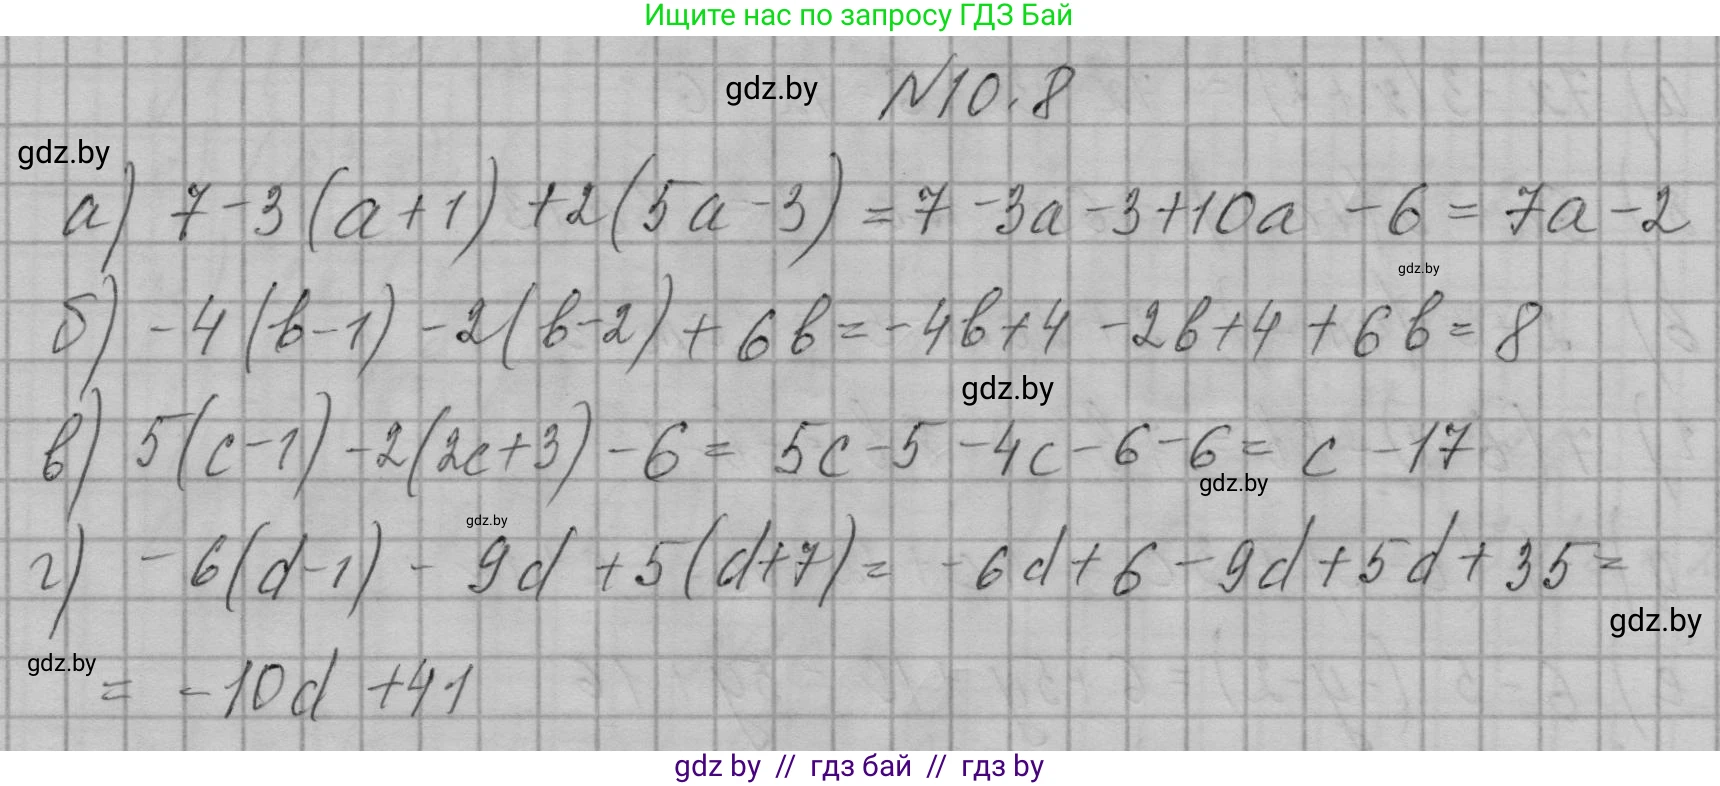 Ищите нас по запросу ГДЗ Бай
gdz.by №10.8
gdz.by
а) 7-3(a+1)+2(5a-3)=7-3a-3+10a-6=7a-2
gdz.by
б) -4(b-1)-2(b-2)+6b=-4b+4-2b+4+6b=8
gdz.by
в) 5(c-1)-2(2c+3)-6=5c-5-4c-6-6=c-17
gdz.by
gdz.by
г) -6(d-1)-9d+5(d+7)=-6d+6-9d+5d+35=
gdz.by
gdz.by
= -10d+41
gdz by // гдз бай // гдз by